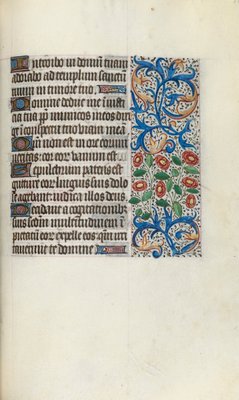 Introibo in domum tuam
adorabo ad templum sanctū
tuum in timore tuo
Domine deduc me in iusti
cia tua propt inimicos meos diri
ge in conspectu tuo viam meā
Qm non est in ore eorum
veritas cor eorum vanum est
Sepulcrum patens est
guttur eorum linguis suis dolo
se agebant iudica illos deus
Decidant a cogitationibus
suis secundum multitudinem im
pietatum eorum expelle eos qm irri
tauerunt te domine